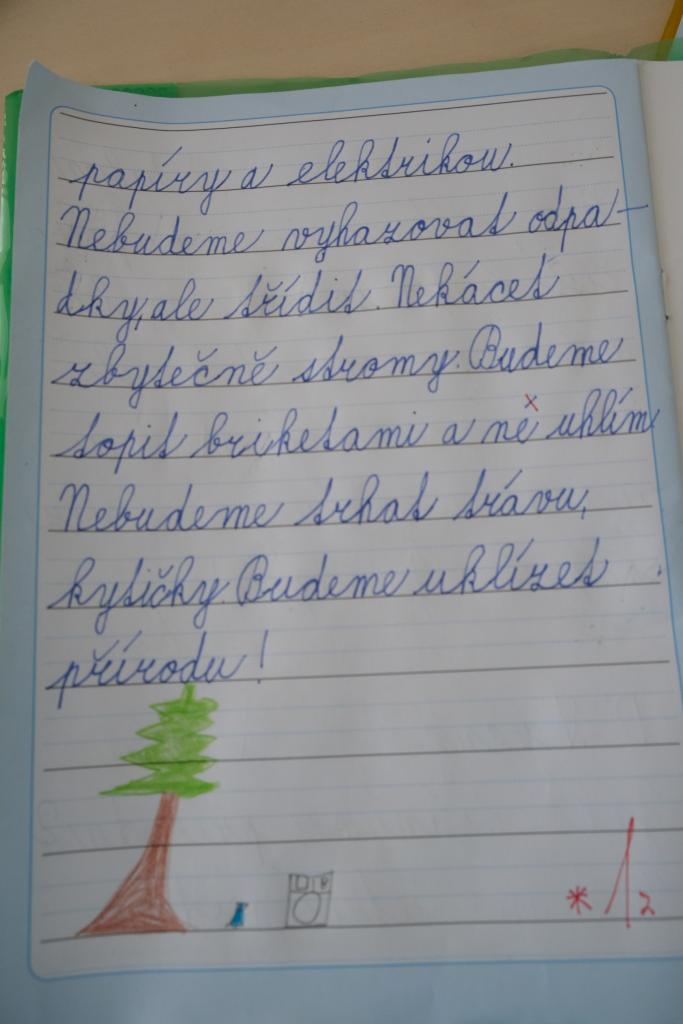 papíry a elektrikou.
Nebudeme vyhazovat odpa-
dky, ale třídit. Nekácet
zbytečně stromy. Budeme
topit briketami a ně uhlím
Nebudeme trhat trávu,
kytičky. Budeme uklízet
přírodu!
* 1 2